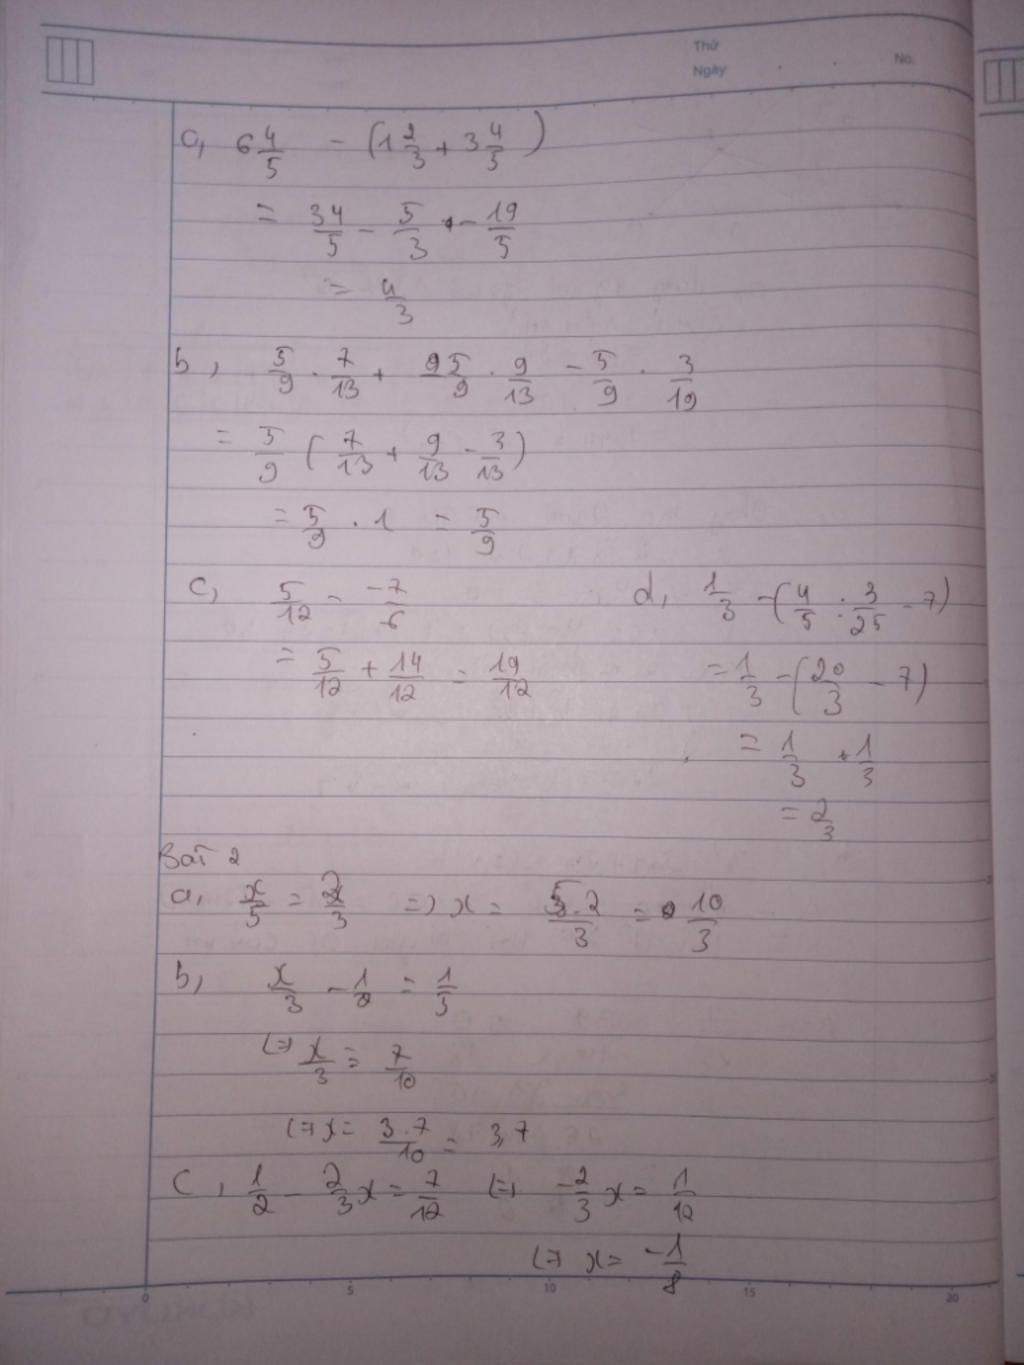 Thứ
Ngày
No.
a, 6 4/5 - (1 2/3 + 3 4/5)
= 34/5 - 5/3 - 19/5
= 4/3
b, 5/9 . 7/13 + 5/9 . 9/13 - 5/9 . 3/19
= 5/9 (7/13 + 9/13 - 3/13)
= 5/9 . 1 = 5/9
c, 5/12 - -7/6
= 5/12 + 14/12 = 19/12
d, 1/3 - (4/5 : 3/25 - 7)
= 1/3 - (20/3 - 7)
= 1/3 + 1/3
= 2/3
Bài 2
a, x/5 = 2/3 => x = 5.2/3 = 10/3
b, x/3 - 1/2 = 1/5
<=> x/3 = 7/10
<=> x = 3.7/10 = 3,7
c, 1/2 - 2/3 x = 7/12 <=> -2/3 x = 1/12
<=> x = -1/8
0 5 10 15 20